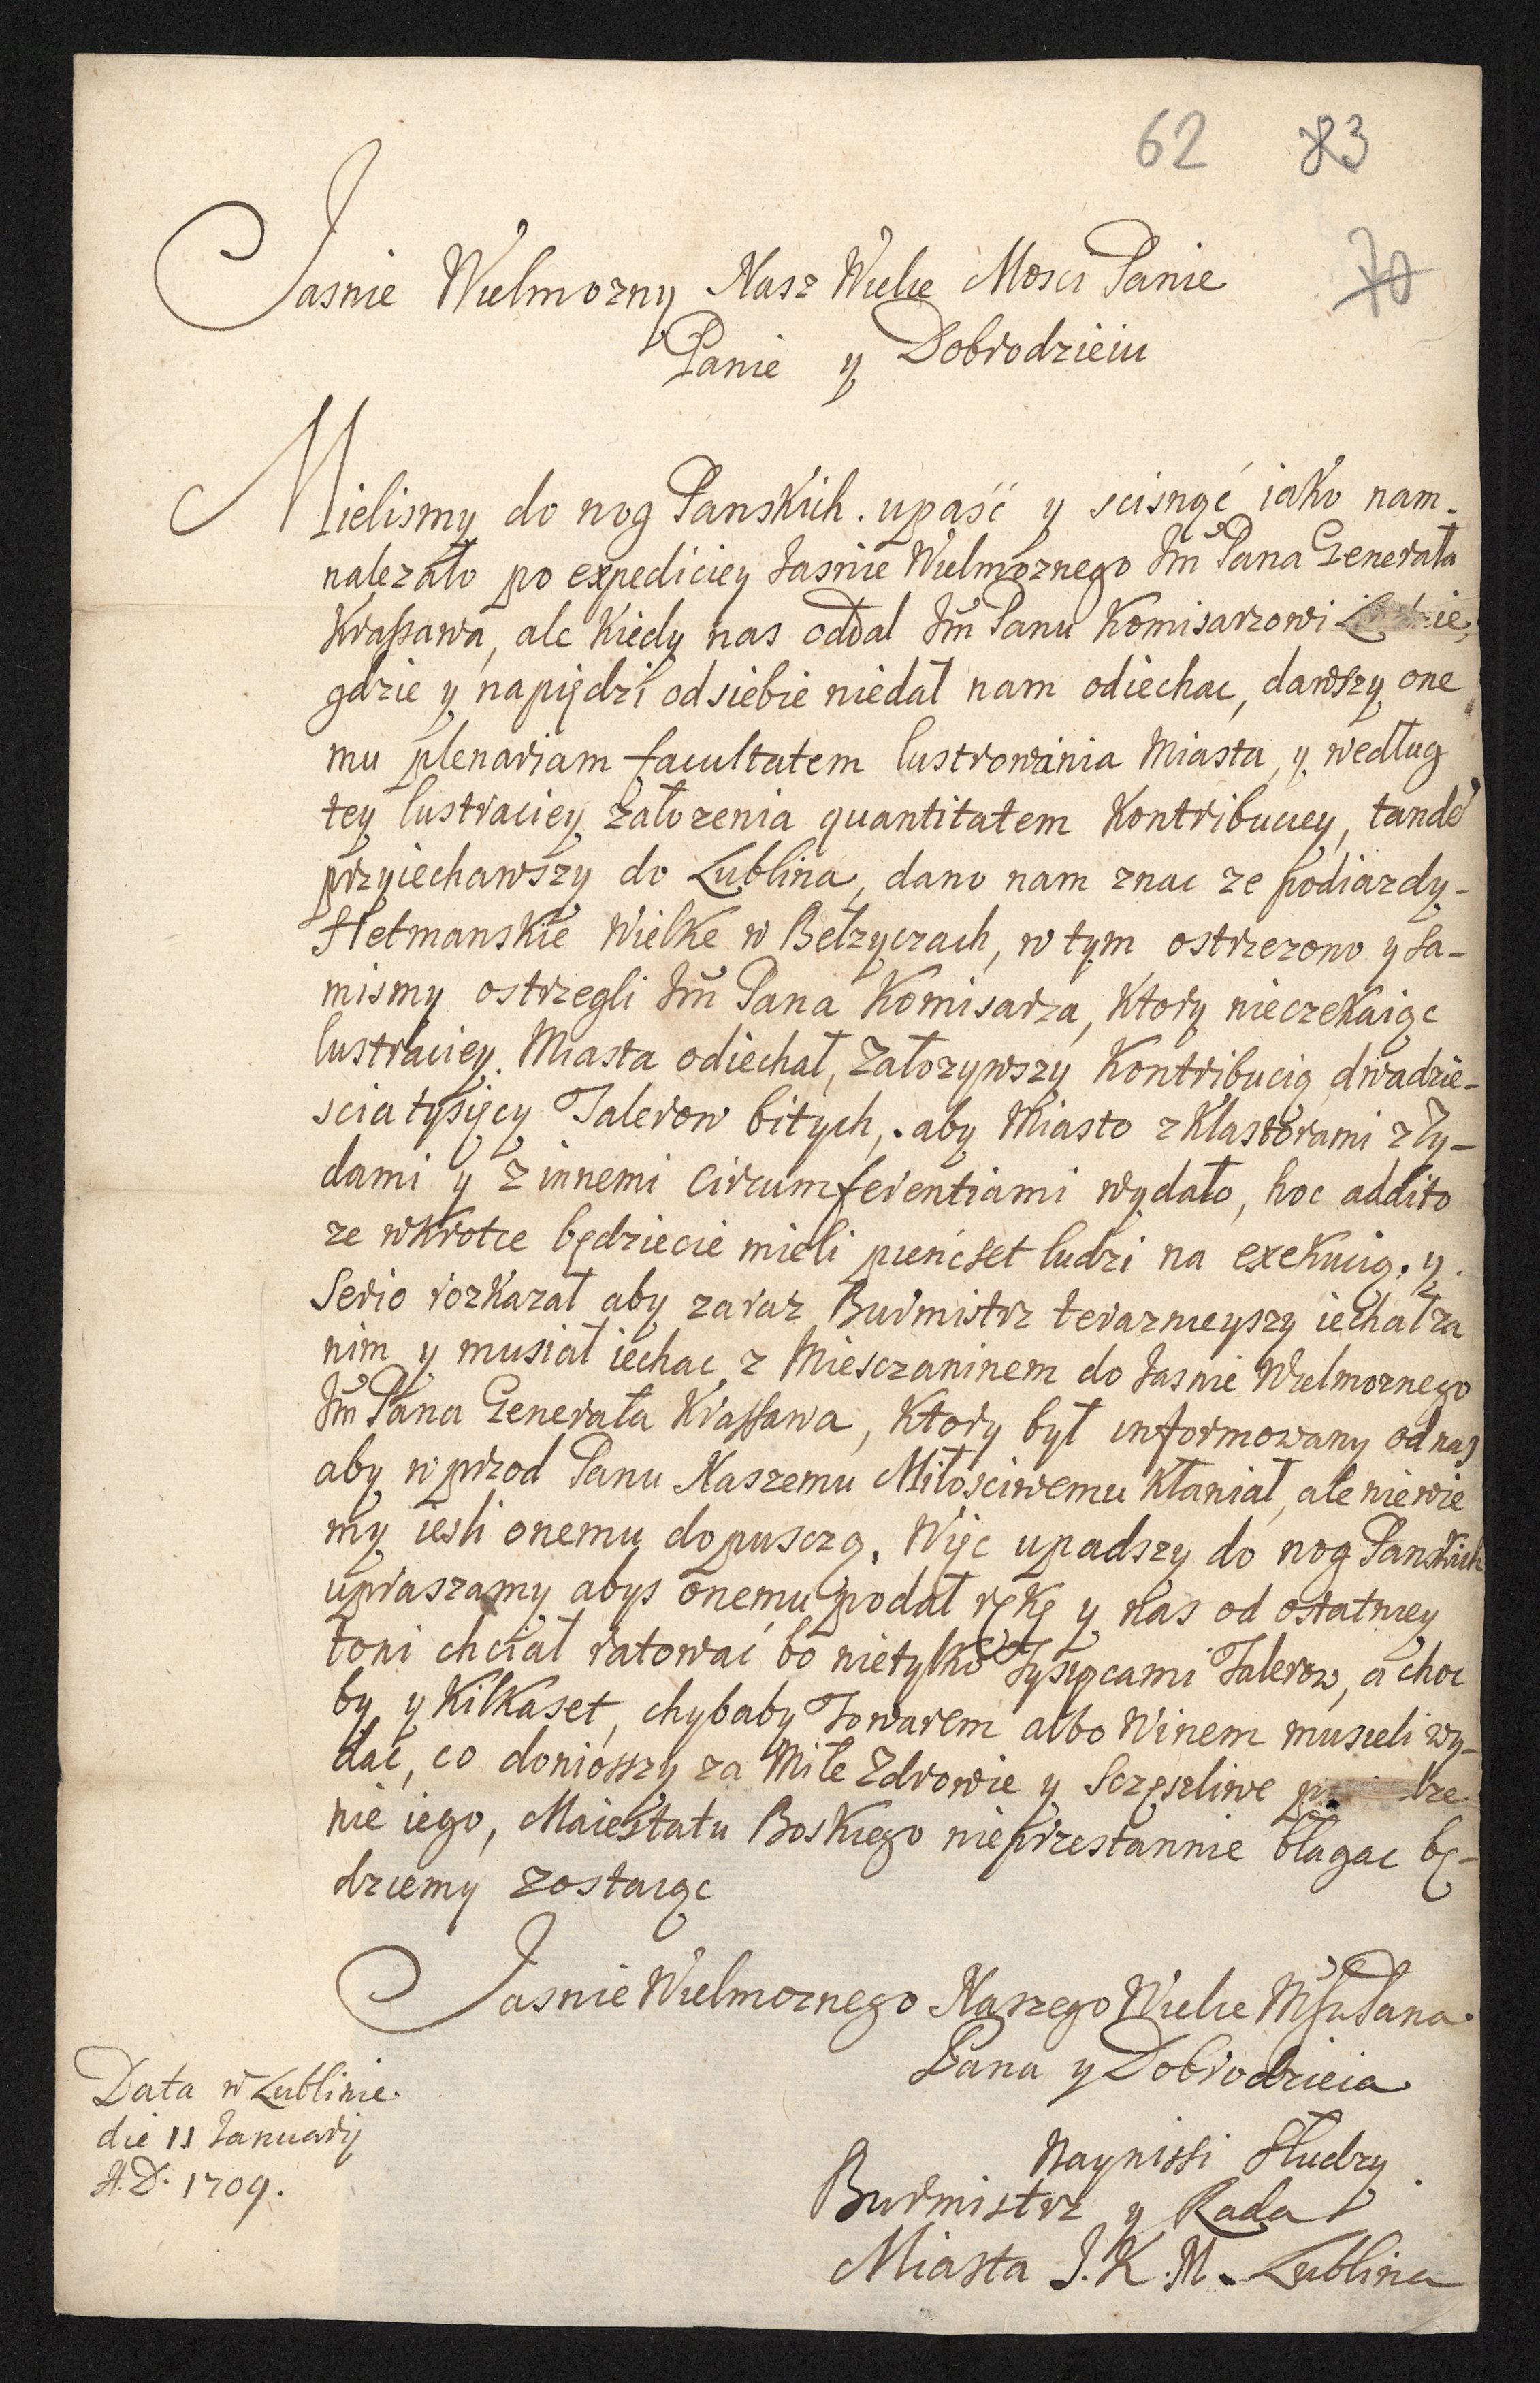 62 83
70
Jasnie Wielmozny Nasz Wielce Mosci Panie
Panie y Dobrodzieiu
Mielismy do nog Panskich. upaść y scisnąć iako nam-
nalezało po expediciey Jasnie Wielmoznego Jm̃ Pana Generała
Krassawa, ale kiedy nas oddał Jm̃ Panu Komisarzowi
gdzie y napiędzi od siebie niedał nam odiechac, dawszy one
mu plenariam facultatem lustrowania Miasta, y według
tey lustraciey załozenia quantitatem Kontribuciey, tandẽ
przyiechawszy do Lublina, dano nam znac ze podiazdy-
Hetmanskie Wielke w Bełzyczach, w tym ostrzezono y sa-
mismy ostrzegli Jm̃ Pana Komisarza, ktory nieczekaiąc
lustraciey. Miasta odiechał, załozywszy Kontribucią dwadzie-
scia tysięcy Talerow bitych,. aby Miasto z Klastorami z Zy-
dami y z innemi circumferentiami wydało, hoc addito
ze wkrotce będziecie mieli pieńcset ludzi na exekucią. y.
Serio rozkazał aby zaraz Burmistrz teraznieyszy iechał za
nim y musiał iechac z Miesczaninem do Jasnie Wielmoznego
Jm̃ Pana Generała Krassawa, ktory był informowany od nas
aby w przod Panu Naszemu Miłosciwemu kłaniał, ale niewie
my iesli onemu dopusczą. Więc upadszy do nog Panskich
upraszamy abys onemu podał rękę y nas od ostatniey
toni chciał ratować bo nietylko Tysięcami Talerow, a choc
by y kilkaset, chybaby Towarem albo Winem musieli wy-
dać, co doniosszy za Miłe Zdrowie y Sczęsliwe
nie iego, Maiestatu Boskiego nieprzestannie błagac bę-
dziemy zostaiąc
Jasnie Wielmoznego Naszego Wielce Mſci Pana
Pana y Dobrodzieia
Naynissi Słudzy
Burmistrz y Rada
Miasta J. K. M. Lublina
Data w Lublinie.
die 11 Januarij
A. D. 1709.